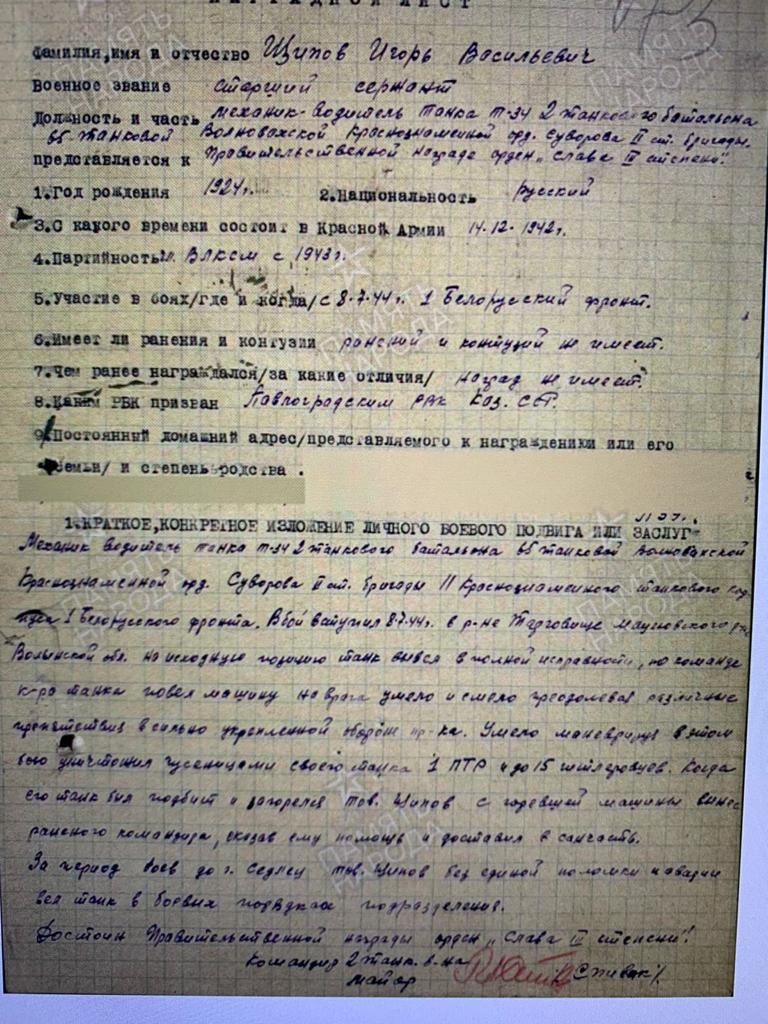 НАГРАДНОЙ ЛИСТ
Фамилия,имя и отчество Щипов Игорь Васильевич
Военное звание старший сержант
Должность и часть механик-водитель танка Т-34 2 танкового батальона
65-танковой Волновахской Краснознаменной орд. Суворова II ст. бригады.
представляется к Правительственной награде орден „Слава III степени".
1.Год рождения 1924г. 2.Национальность русский
3.С какого времени состоит в Красной Армии 14-12-1942г.
4.Партийность ВЛКСМ с 1943г.
5.Участие в боях/где и когда/ с 8-7-44г. 1 Белорусский фронт.
6.Имеет ли ранения и контузии ранений и контузий не имеет.
7.Чем ранее награждался/за какие отличия/ наград не имеет.
8.Каким РВК призван Павлоградским РВК Каз. ССР.
9.Постоянный домашний адрес/представляемого к награждению или его
семьи/ и степень родства.
1.КРАТКОЕ,КОНКРЕТНОЕ ИЗЛОЖЕНИЕ ЛИЧНОГО БОЕВОГО ПОДВИГА ИЛИ ЗАСЛУГ
Механик водитель танка Т-34 2 танкового батальона 65 танковой Волновахской
Краснознаменной орд. Суворова II ст. бригады 11 Краснознаменного танкового кор-
пуса 1 Белорусского фронта. В бой вступил 8-7-44г. в р-не Торговище Мацеевского р-на
Волынской обл. на исходную позицию танк вывел в полной исправности, по команде
к-ра танка повел машину на врага умело и смело преодолевая различные
препятствия в сильно укрепленной обороне пр-ка. Умело маневрируя в этом
бою уничтожил гусеницами своего танка 1 ПТР и до 15 гитлеровцев. Когда
его танк был подбит и загорелся тов. Щипов с горевшей машины вынес
раненого командира, оказав ему помощь и доставил в санчасть.
За период боев до г. Седлец тов. Щипов без единой поломки и аварии
вел танк в боевых порядках подразделения.
Достоин Правительственной награды орден „Слава III степени".
Командир 2 танк. б-на
майор /Спивак/.
ПАМЯТЬ НАРОДА